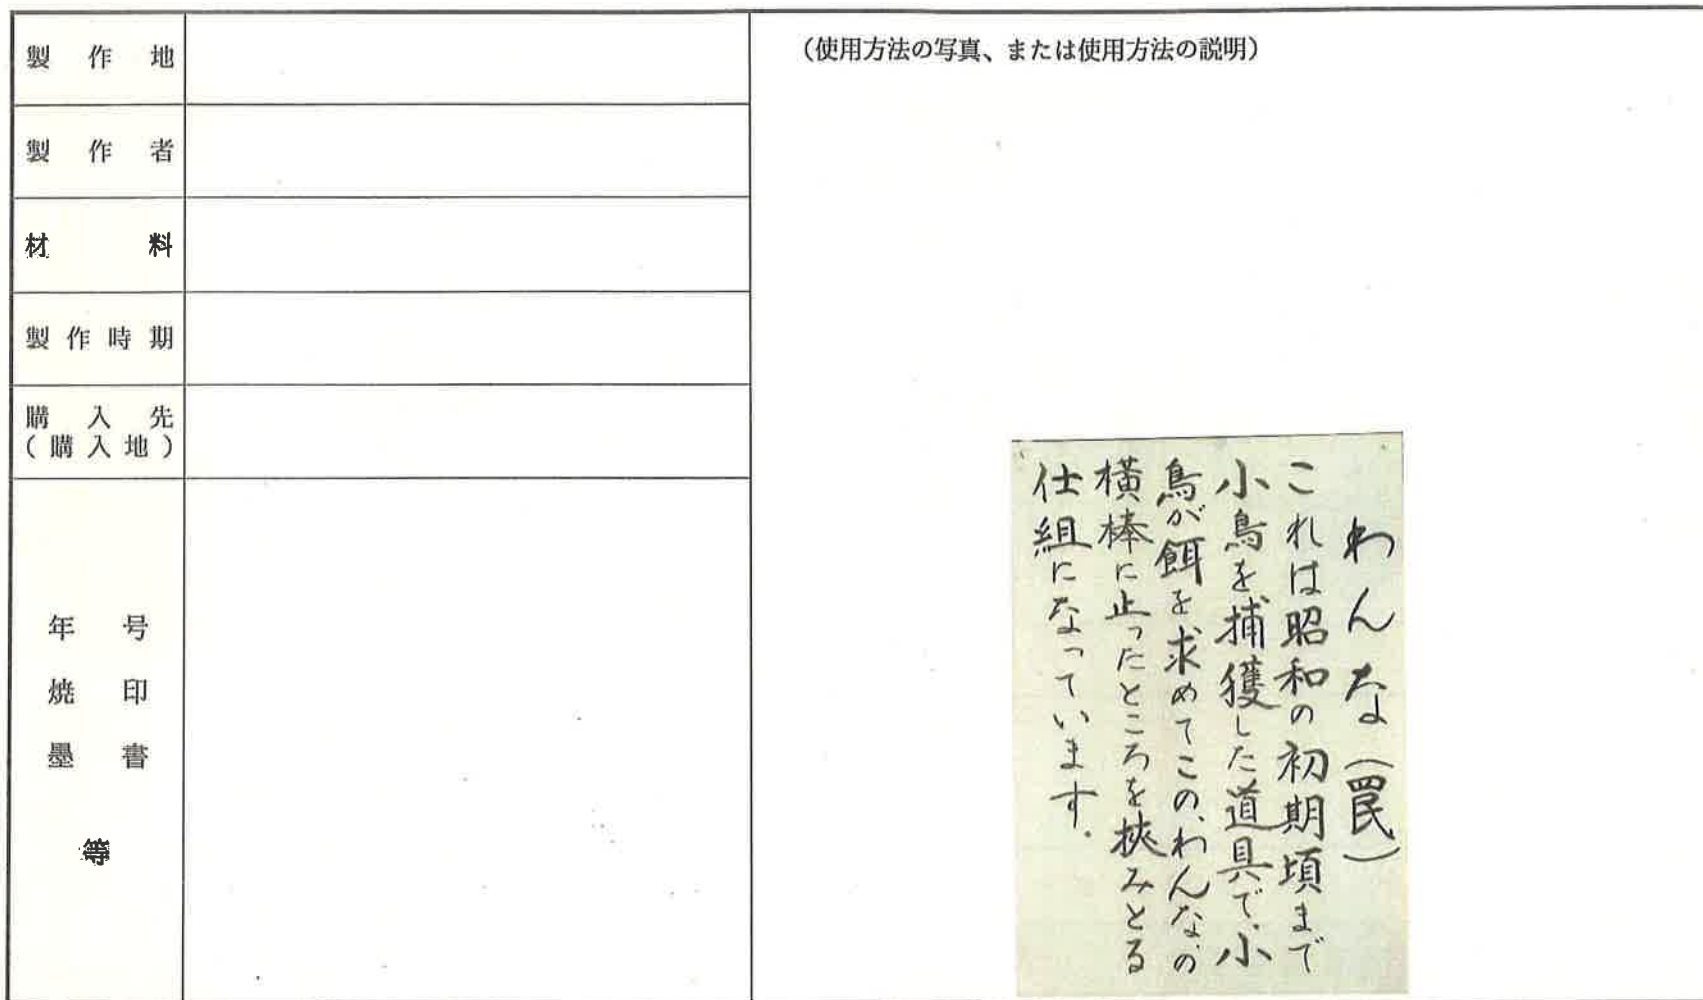 製作地
製作者
材料
製作時期
購入先
(購入地)
年号
焼印
墨書
等
(使用方法の写真、または使用方法の説明)
わんな(罠)
これは昭和の初期頃まで
小鳥を捕獲した道具で、小
鳥が餌を求めてこの、わんな、の
横棒に止ったところを挾みとる
仕組になっています.